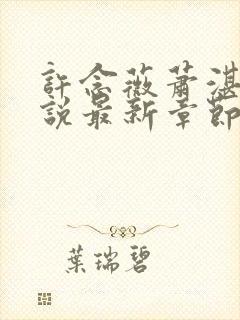 許念薇蕭湛
說最新章節
葉瑞碧